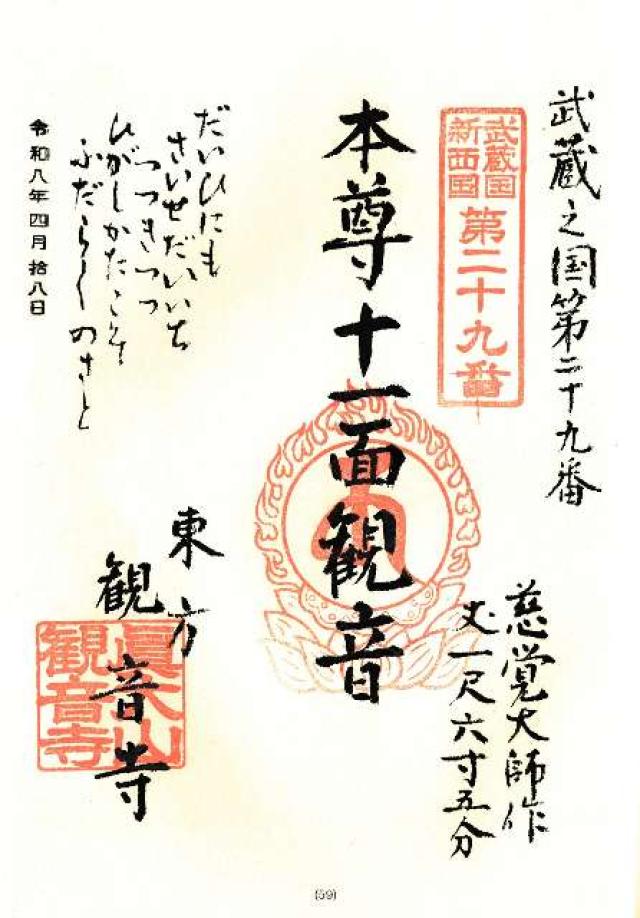 武蔵之国第二十九番
武蔵国
新西国
第二十九番
慈覚大師作
丈一尺六寸五分
本尊十一面観音
だいひにも
さいせだいいち
つつきつつ
ひがしかたこそ
ふだらくのさと
東方
観音寺
眞大山
観音寺
令和八年四月拾八日
(59)